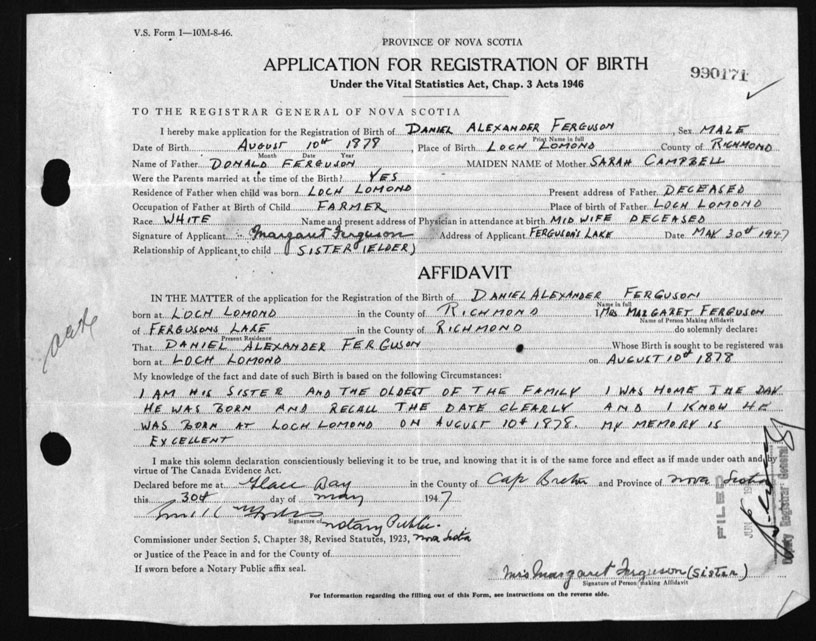 V.S. Form 1—10M-8-46.
PROVINCE OF NOVA SCOTIA
APPLICATION FOR REGISTRATION OF BIRTH
990171
Under the Vital Statistics Act, Chap. 3 Acts 1946
TO THE REGISTRAR GENERAL OF NOVA SCOTIA
I hereby make application for the Registration of Birth of DANIEL ALEXANDER FERGUSON, Sex MALE
Print Name in full
Date of Birth AUGUST 10th 1878, Place of Birth LOCH LOMOND County of RICHMOND
Month Date Year
Name of Father DONALD FERGUSON MAIDEN NAME of Mother SARAH CAMPBELL
Were the Parents married at the time of the Birth? YES
Residence of Father when child was born LOCH LOMOND Present address of Father DECEASED
Occupation of Father at Birth of Child FARMER Place of birth of Father LOCH LOMOND
Race WHITE Name and present address of Physician in attendance at birth MID WIFE DECEASED
Signature of Applicant Margaret Ferguson Address of Applicant FERGUSON'S LAKE Date MAY 30th 1947
Relationship of Applicant to child SISTER (ELDER)
AFFIDAVIT
IN THE MATTER of the application for the Registration of the Birth of DANIEL ALEXANDER FERGUSON
Name in full
born at LOCH LOMOND in the County of RICHMOND I MRS MARGARET FERGUSON
Name of Person Making Affidavit
of FERGUSONS LAKE in the County of RICHMOND do solemnly declare:
Present Residence
That DANIEL ALEXANDER FERGUSON Whose Birth is sought to be registered was
born at LOCH LOMOND on AUGUST 10th 1878
My knowledge of the fact and date of such Birth is based on the following Circumstances:
I AM HIS SISTER AND THE OLDEST OF THE FAMILY I WAS HOME THE DAY
HE WAS BORN AND RECALL THE DATE CLEARLY AND I KNOW HE
WAS BORN AT LOCH LOMOND ON AUGUST 10th 1878. MY MEMORY IS
EXCELLENT
I make this solemn declaration conscientiously believing it to be true, and knowing that it is of the same force and effect as if made under oath and by
virtue of The Canada Evidence Act.
Declared before me at Glace Bay in the County of Cape Breton and Province of Nova Scotia
this 30th day of May 1947
Signature of Notary Public
Commissioner under Section 5, Chapter 38, Revised Statutes, 1923, Nova Scotia
or Justice of the Peace in and for the County of
If sworn before a Notary Public affix seal.
Mrs Margaret Ferguson (Sister)
Signature of Person making Affidavit
For Information regarding the filling out of this Form, see instructions on the reverse side.
FILED
Deputy Registrar General